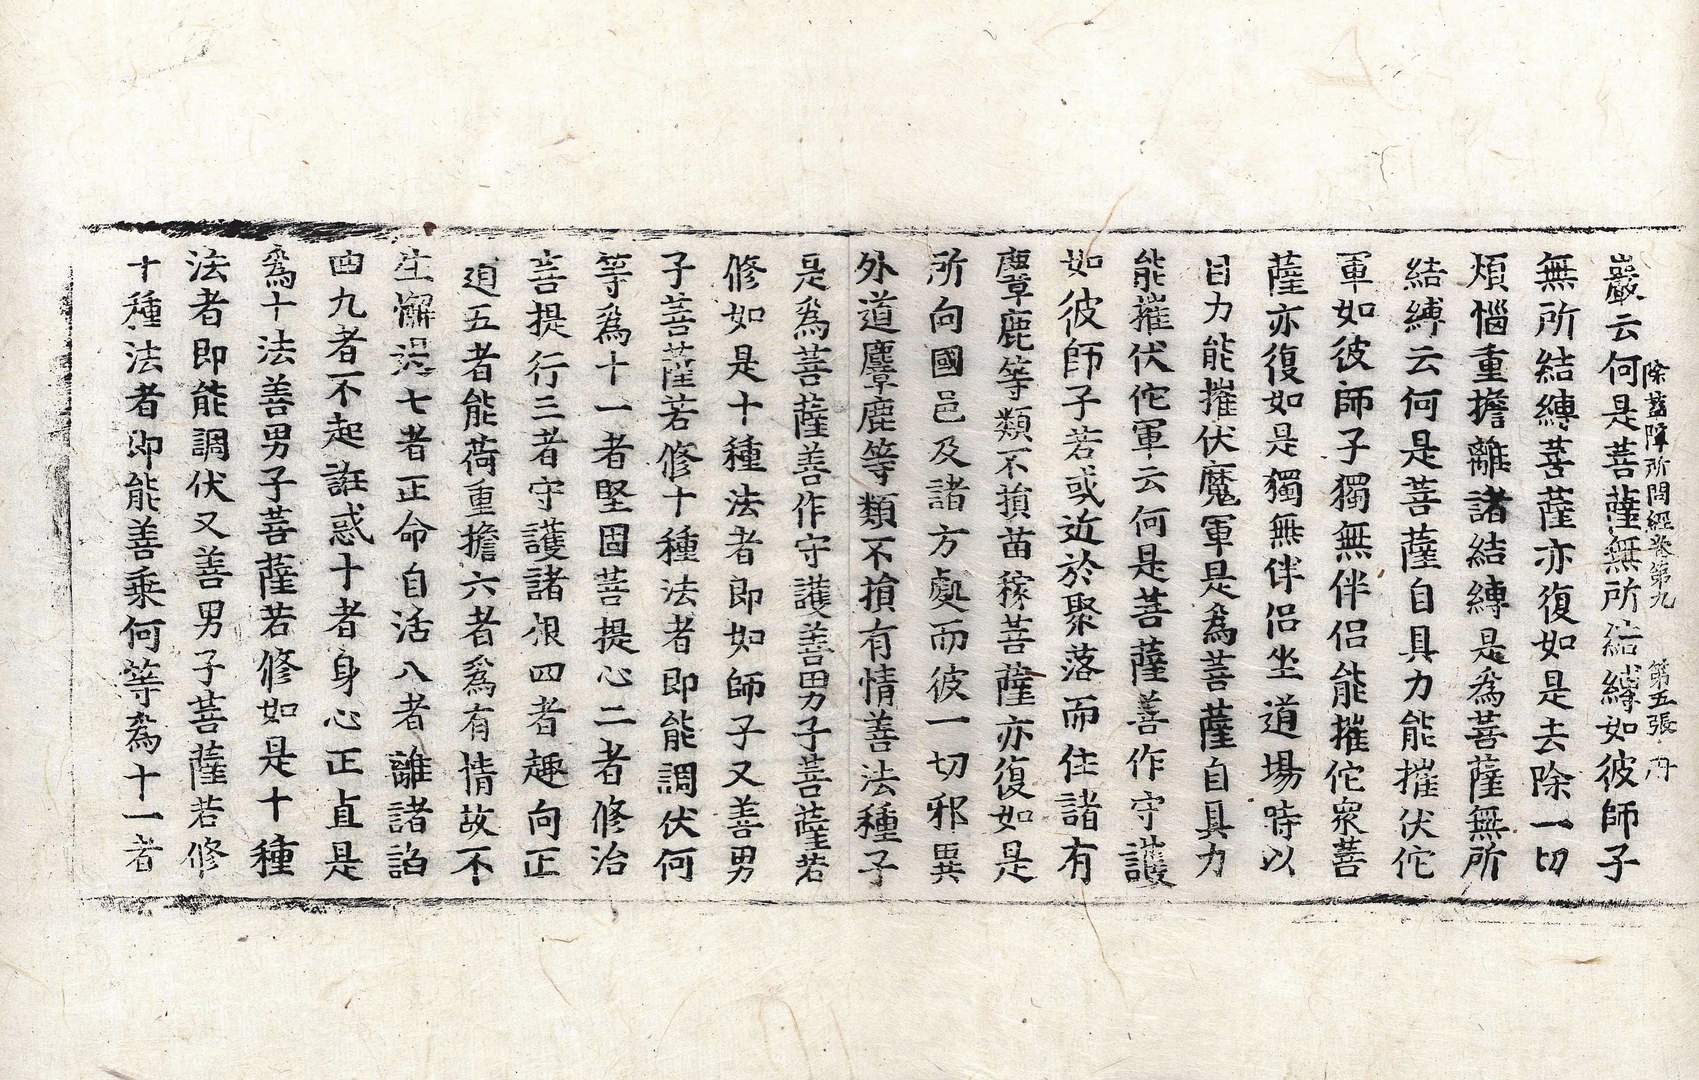 除蓋障所問經卷第九　第五張　丹
巖云何是菩薩無所結縛如彼師子
無所結縛菩薩亦復如是去除一切
煩惱重擔離諸結縛是爲菩薩無所
結縛云何是菩薩自具力能摧伏佗
軍如彼師子獨無伴侶能摧佗衆菩
薩亦復如是獨無伴侶坐道場時以
自力能摧伏魔軍是爲菩薩自具力
能摧伏佗軍云何是菩薩善作守護
如彼師子若或近於聚落而住諸有
麞鹿等類不損苗稼菩薩亦復如是
所向國邑及諸方處而彼一切邪異
外道麞鹿等類不損有情善法種子
是爲菩薩善作守護善男子菩薩若
修如是十種法者即如師子又善男
子菩薩若修十種法者即能調伏何
等爲十一者堅固菩提心二者修治
菩提行三者守護諸根四者趣向正
道五者能荷重擔六者爲有情故不
生懈退七者正命自活八者離諸諂
曲九者不起誑惑十者身心正直是
爲十法善男子菩薩若修如是十種
法者即能調伏又善男子菩薩若修
十種法者即能善乘何等爲十一者